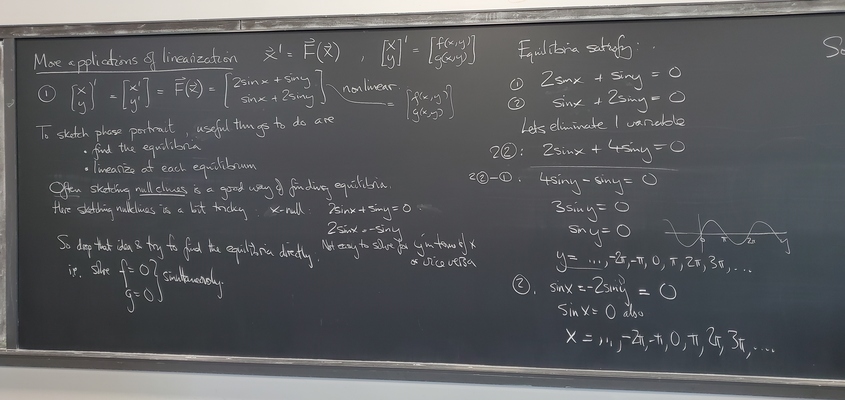 More applications of linearization x⃗' = F⃗(x⃗) , [x y]' = [f(x,y) g(x,y)]
① [x y]' = [x' y'] = F⃗(x⃗) = [2sinx + siny sinx + 2siny] nonlinear = [f(x,y) g(x,y)]
To sketch phase portrait, useful things to do are
• find the equilibria
• linearize at each equilibrium
Often sketching nullclines is a good way of finding equilibria.
Here sketching nullclines is a bit tricky x-null: 2sinx + siny = 0
2sinx = -siny
Not easy to solve for y in terms of x
or vice versa
So drop that idea & try to find the equilibria directly.
ie. solve f = 0 } simultaneously.
g = 0
Equilibria satisfy:
① 2sinx + siny = 0
② sinx + 2siny = 0
Lets eliminate 1 variable
2②: 2sinx + 4siny = 0
2②-①: 4siny - siny = 0
3siny = 0
siny = 0
0 π 2π y
y = ..., -2π, -π, 0, π, 2π, 3π, ...
②. sinx = -2siny = 0
sinx = 0 also
x = ..., -2π, -π, 0, π, 2π, 3π, ....
So